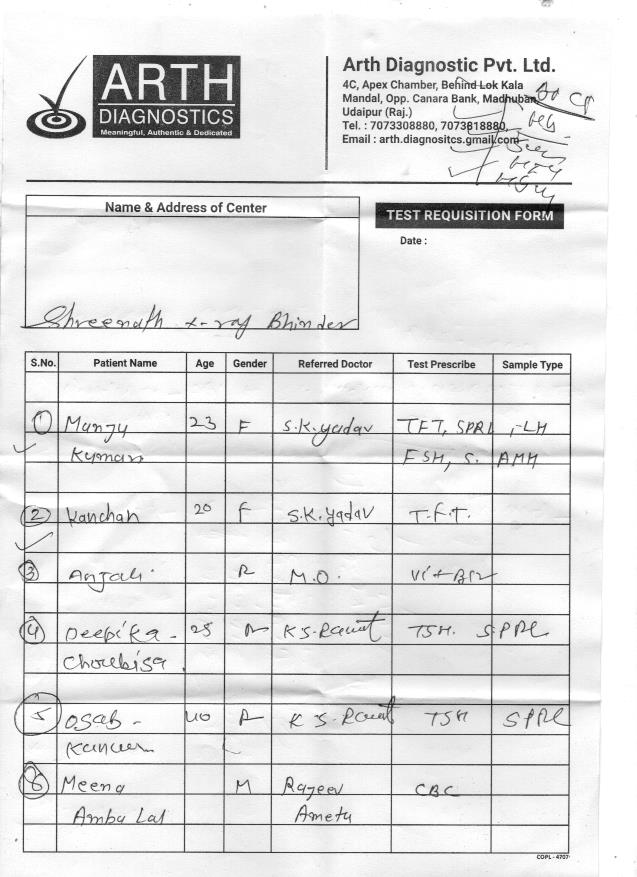 ARTH
DIAGNOSTICS
Meaningful, Authentic & Dedicated
Arth Diagnostic Pvt. Ltd.
4C, Apex Chamber, Behind Lok Kala
Mandal, Opp. Canara Bank, Madhuban
Udaipur (Raj.)
Tel. : 7073308880, 7073818880,
Email : arth.diagnositcs.gmail.com
Name & Address of Center
TEST REQUISITION FORM
Date :
Shreenath x-ray Bhinder
S.No. Patient Name Age Gender Referred Doctor Test Prescribe Sample Type
1 Manju 23 F S.K.yadav TFT, SPRL, LH
Kumari FSH, S. AMH
2 Kanchan 20 F S.K.yadav T.F.T.
3 Anjali M.O. Vit B12
4 Deepika - 25 K S. Rawat TSH. S.PRL
Choubisa
5 Osab - 40 K S. Rawat TSH SPRL
Kanwer
6 Meena M Rajeev CBC
Amba Lal Ameta
COPL - 4707